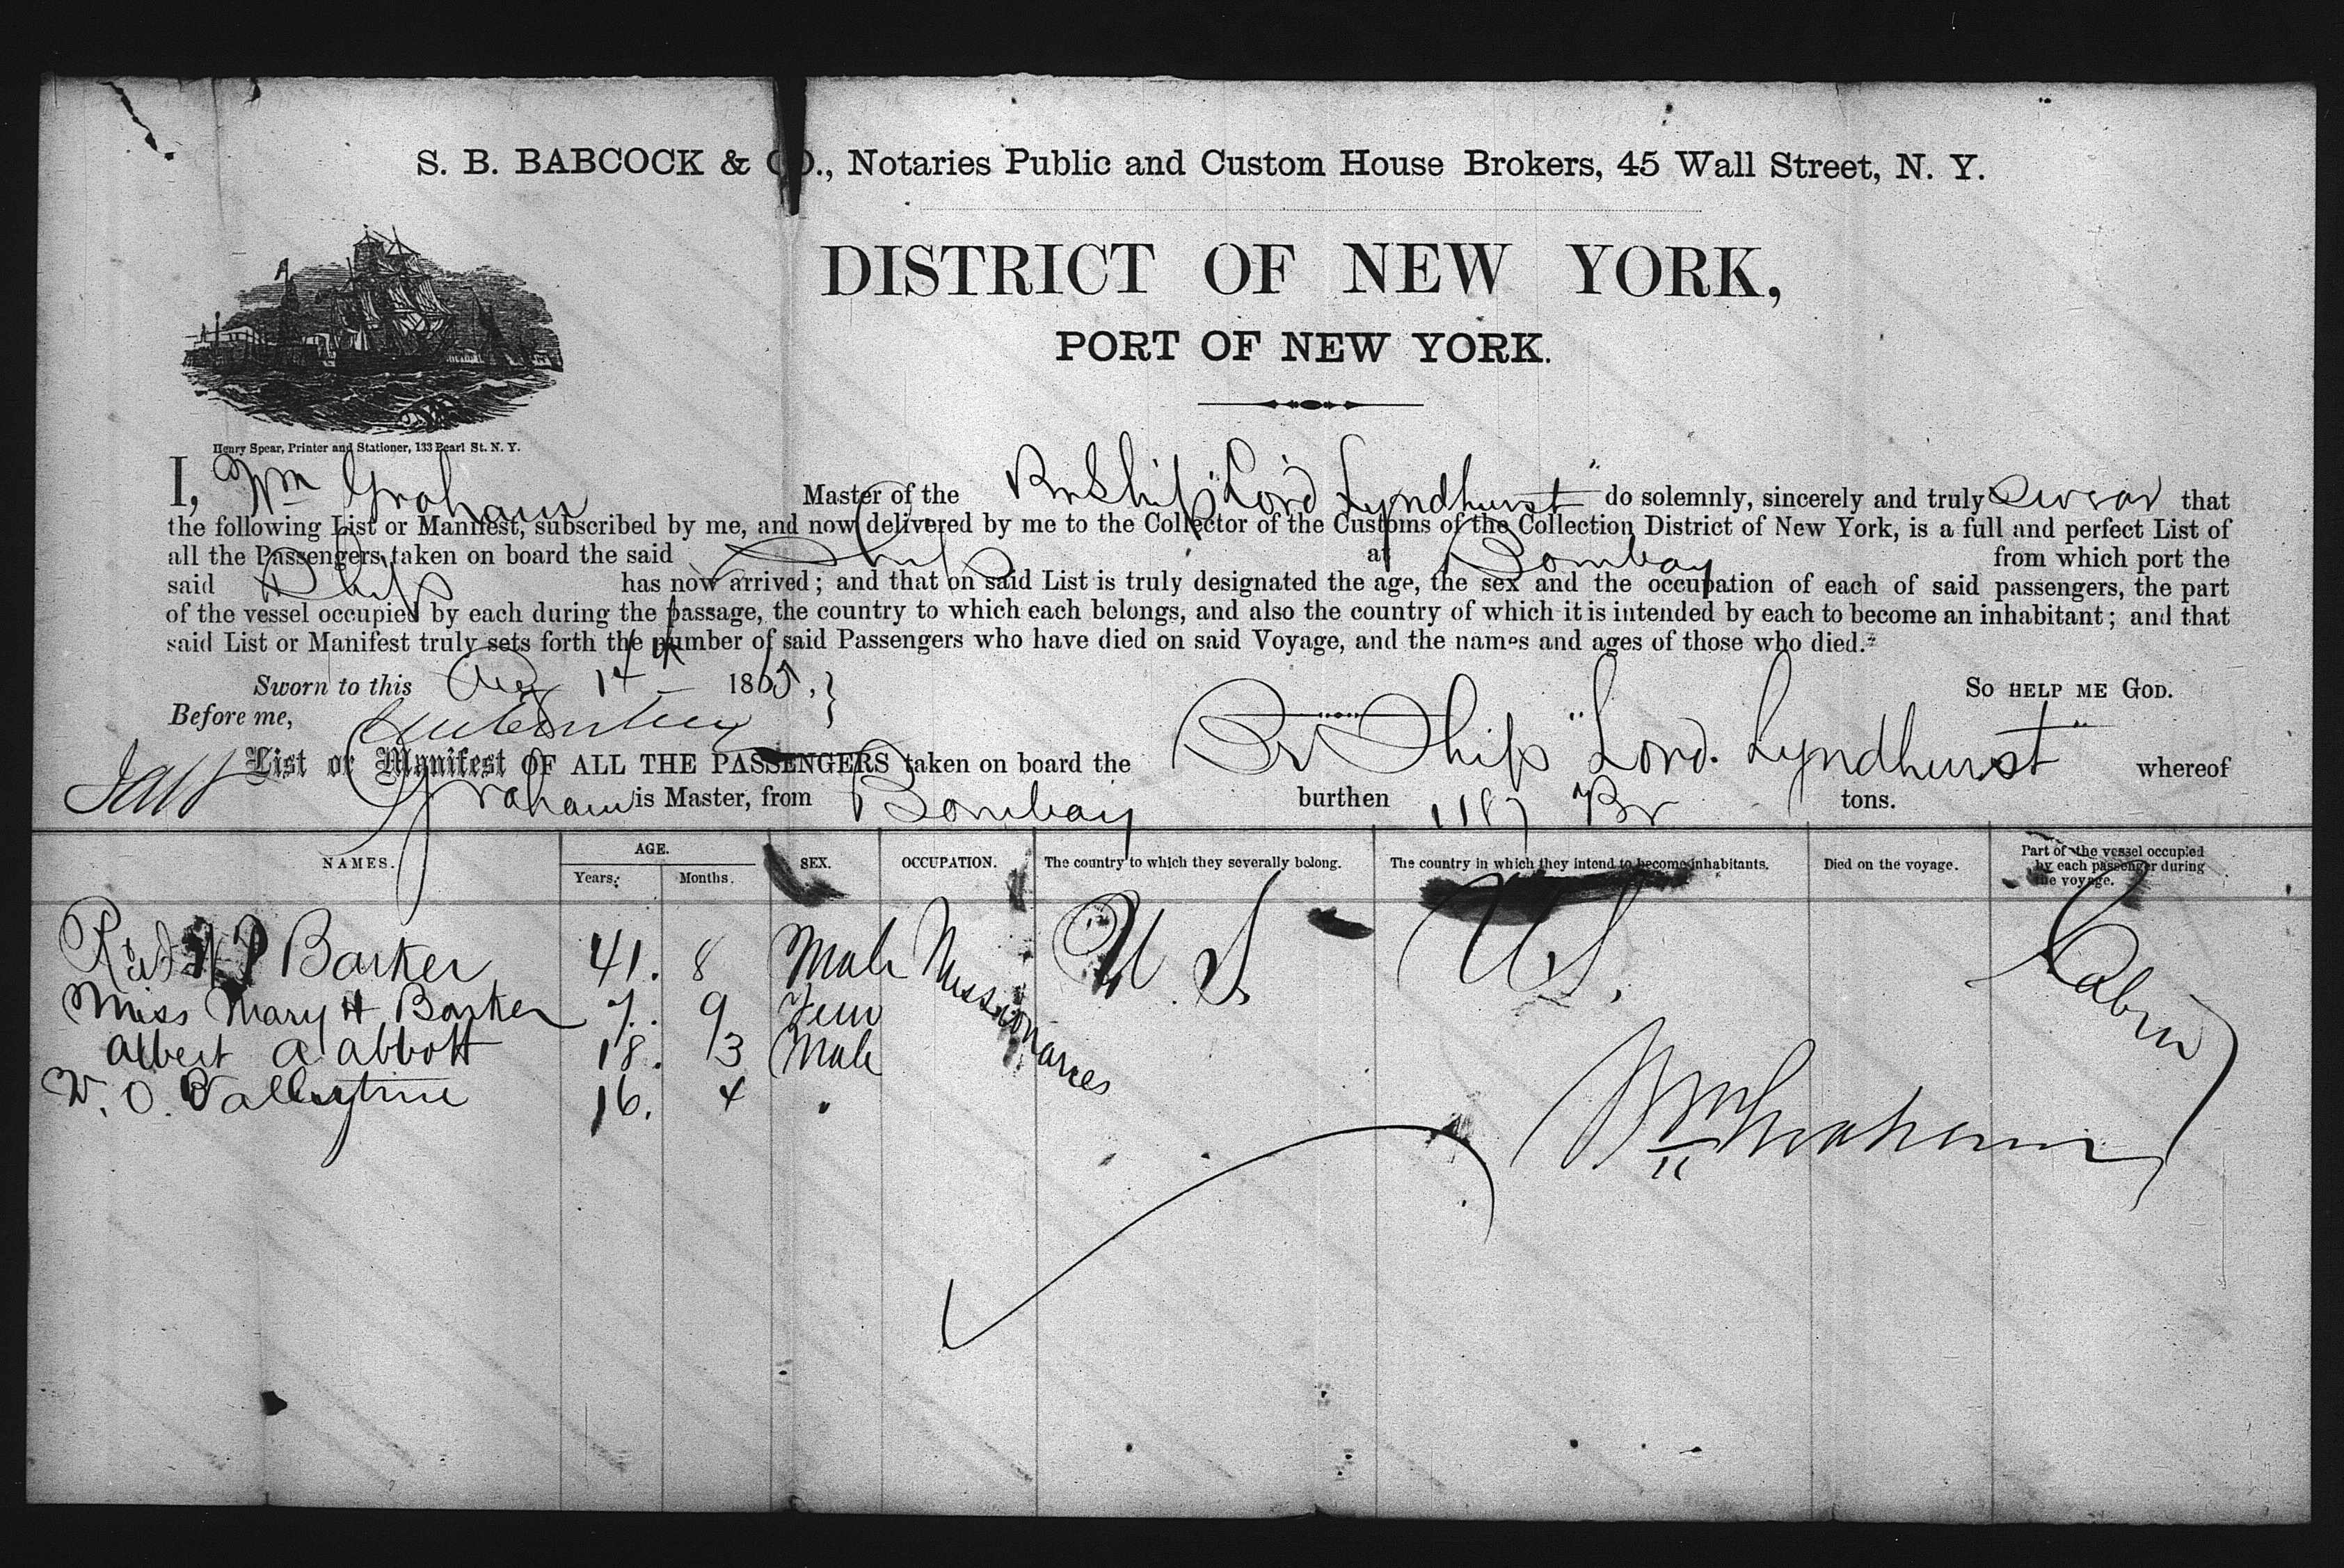 S. B. BABCOCK & CO., Notaries Public and Custom House Brokers, 45 Wall Street, N. Y.
DISTRICT OF NEW YORK,
PORT OF NEW YORK.
Henry Spear, Printer and Stationer, 133 Pearl St. N. Y.
I, Wm Graham Master of the Br Ship "Lord Lyndhurst" do solemnly, sincerely and truly swear that
the following List or Manifest, subscribed by me, and now delivered by me to the Collector of the Customs of the Collection District of New York, is a full and perfect List of
all the Passengers taken on board the said Ship at Bombay from which port the
said Ship has now arrived; and that on said List is truly designated the age, the sex and the occupation of each of said passengers, the part
of the vessel occupied by each during the passage, the country to which each belongs, and also the country of which it is intended by each to become an inhabitant; and that
said List or Manifest truly sets forth the number of said Passengers who have died on said Voyage, and the names and ages of those who died.
Sworn to this Aug 14th 1865, SO HELP ME GOD.
Before me,
List or Manifest OF ALL THE PASSENGERS taken on board the Br Ship "Lord. Lyndhurst" whereof
Graham is Master, from Bombay burthen 1187 Br tons.
NAMES. AGE. Years. Months. SEX. OCCUPATION. The country to which they severally belong. The country in which they intend to become inhabitants. Died on the voyage. Part of the vessel occupied by each passenger during the voyage.
Barker 41. 8 Male Missionaries U S U S. Cabin
Miss Mary H Barker 7. 9 Fem
Albert A Abbott 18. 3 Male
W. O. Ballantine 16. 4 "
Wm Graham